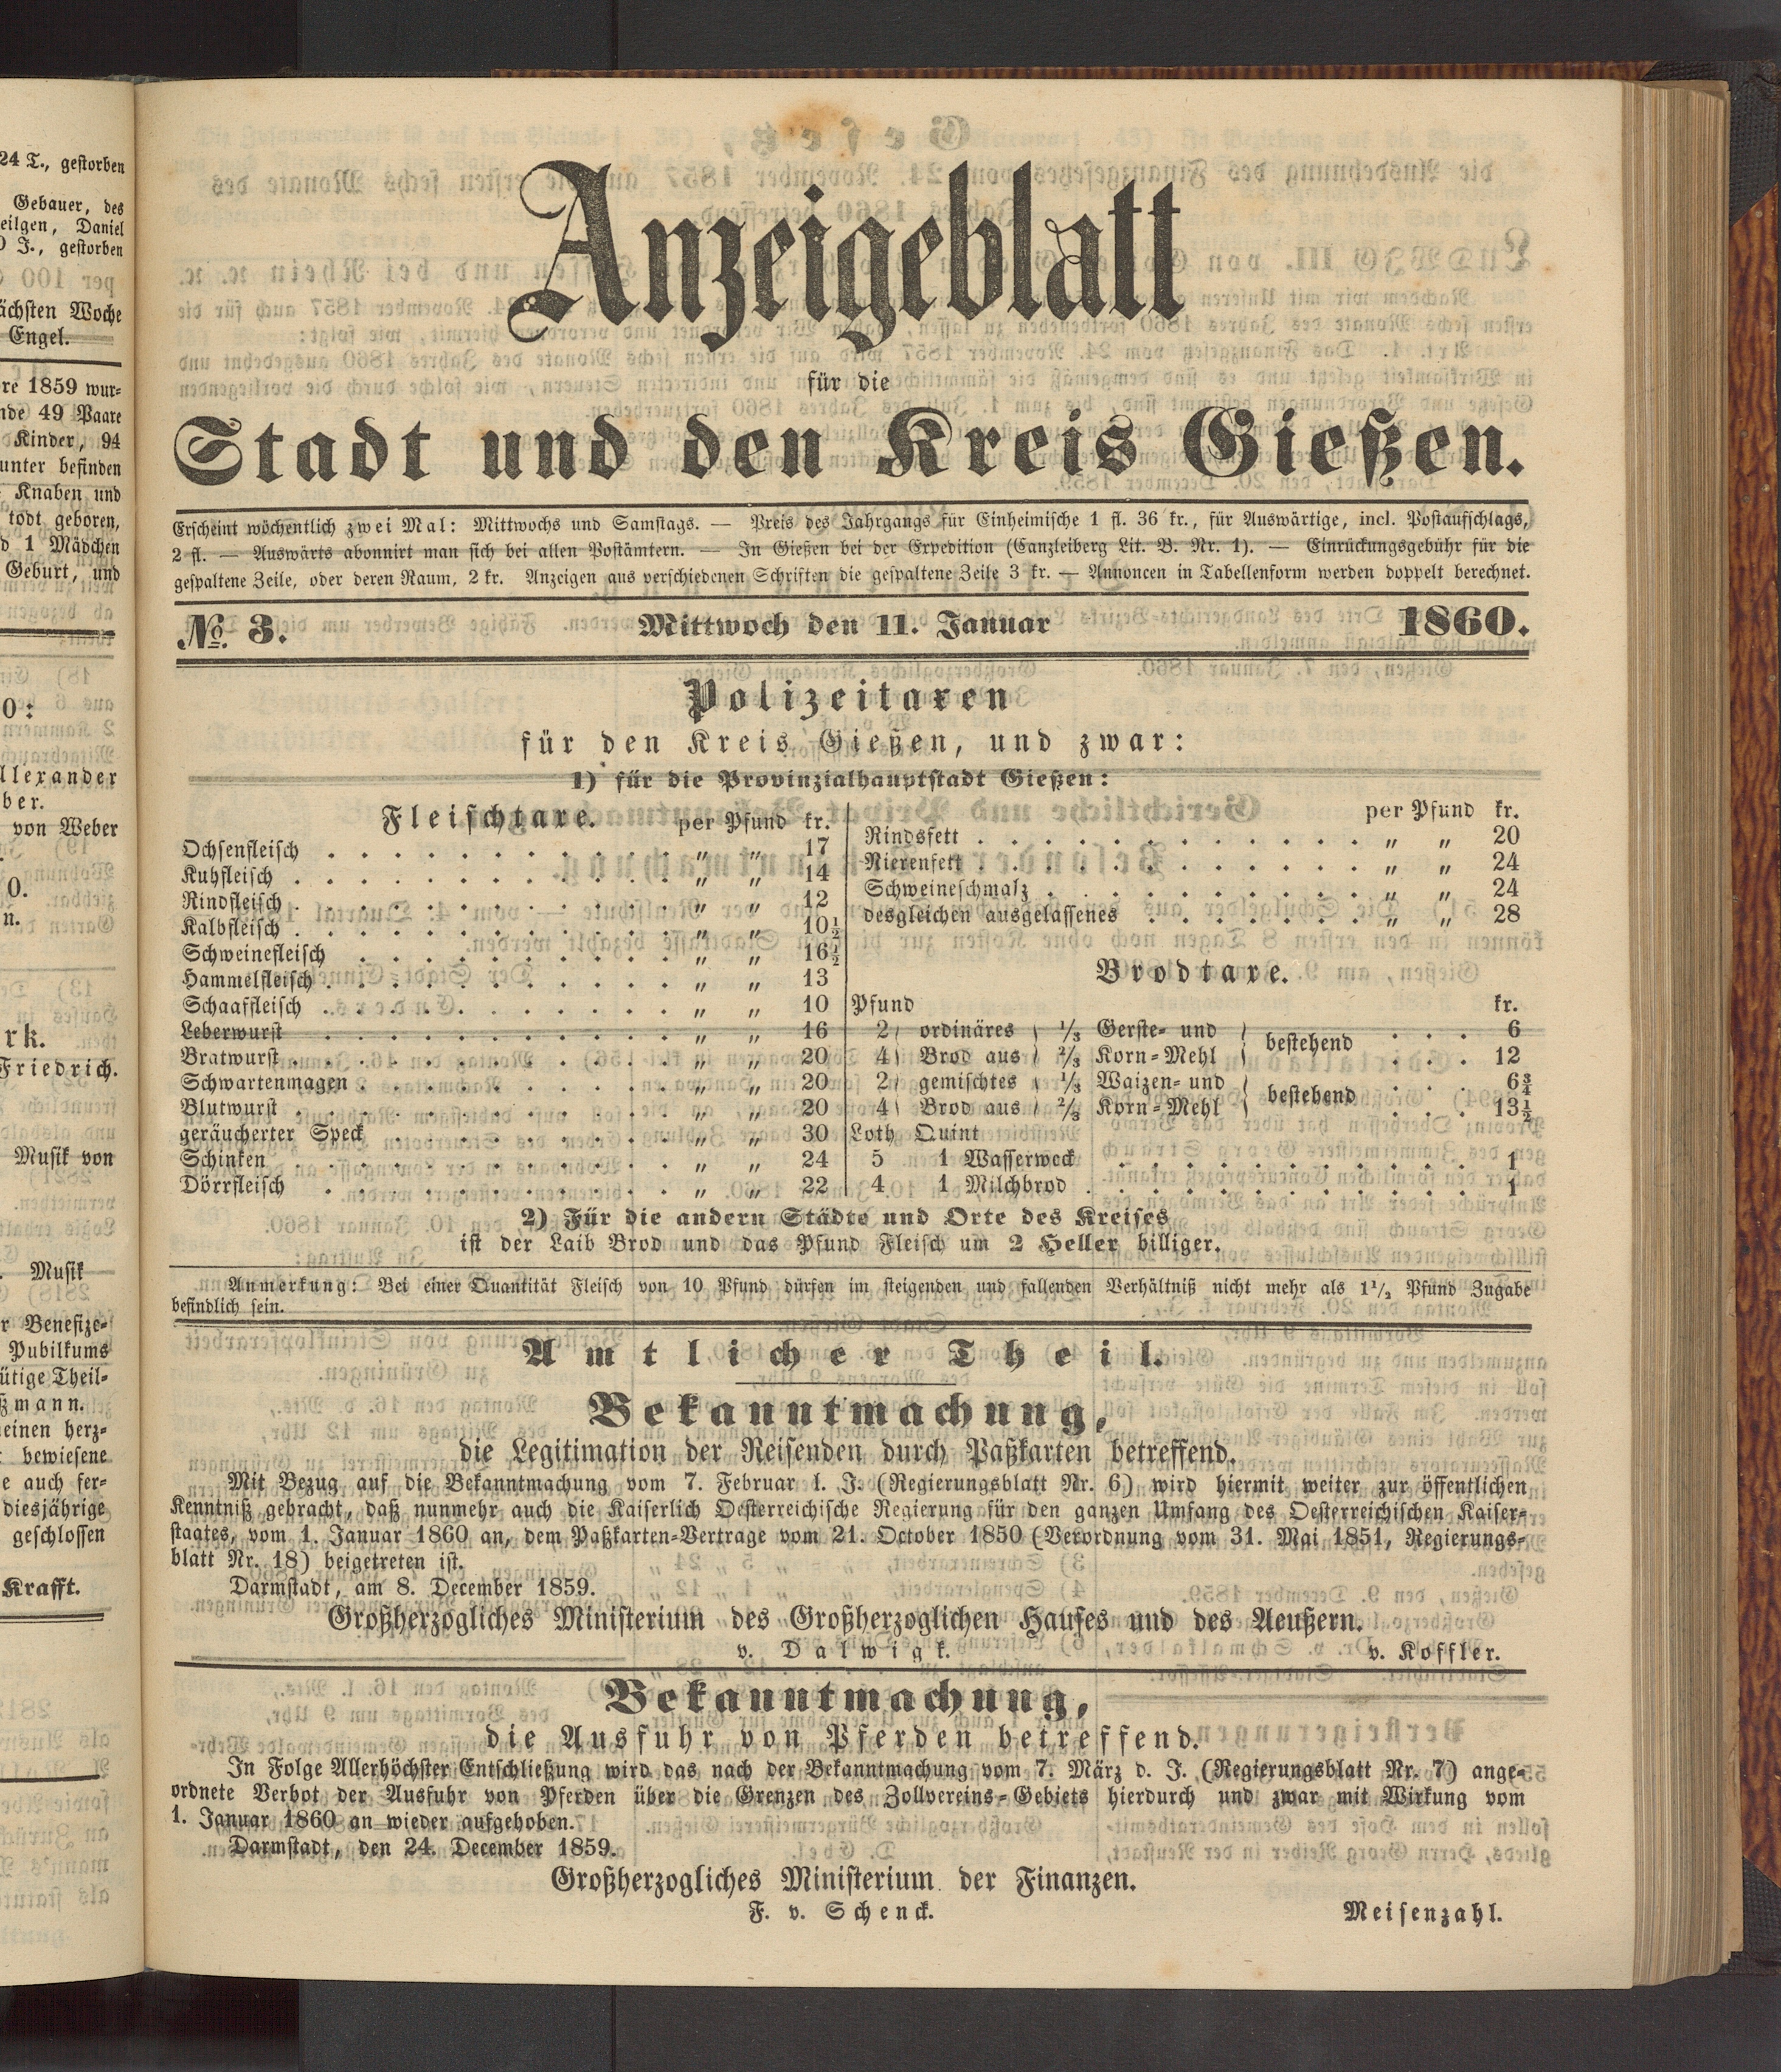 24 T., gestorben
Gebauer, des
eilgen, Daniel
J., gestorben
ächsten Woche
Engel.
re 1859 wur-
nde 49 Paare
Kinder, 94
unter befinden
Knaben und
todt geboren,
d 1 Mädchen
Geburt, und
0:
llexander
ber.
von Weber
0.
n.
rk.
Friedrich.
Musik von
Musik
r Benefize-
Pubilkums
ütige Theil-
ßmann.
einen herz-
bewiesene
e auch fer-
diesjährige
geschlossen
Krafft.
Anzeigeblatt
für die
Stadt und den Kreis Gießen.
Erscheint wöchentlich zwei Mal: Mittwochs und Samstags. — Preis des Jahrgangs für Einheimische 1 fl. 36 kr., für Auswärtige, incl. Postaufschlags,
2 fl. — Auswärts abonnirt man sich bei allen Postämtern. — In Gießen bei der Expedition (Canzleiberg Lit. B. Nr. 1). — Einrückungsgebühr für die
gespaltene Zeile, oder deren Raum, 2 kr. Anzeigen aus verschiedenen Schriften die gespaltene Zeile 3 kr. — Annoncen in Tabellenform werden doppelt berechnet.
№ 3. Mittwoch den 11. Januar 1860.
Polizeitaxen
für den Kreis Gießen, und zwar:
1) für die Provinzialhauptstadt Gießen:
Fleischtaxe. per Pfund kr.
Ochsenfleisch . . . . . . . . . . . „ „ 17
Kuhfleisch . . . . . . . . . . . . „ „ 14
Rindfleisch . . . . . . . . . . . . „ „ 12
Kalbfleisch . . . . . . . . . . . . „ „ 10½
Schweinefleisch . . . . . . . . . . „ „ 16½
Hammelfleisch . . . . . . . . . . . „ „ 13
Schaaffleisch . . . . . . . . . . . „ „ 10
Leberwurst . . . . . . . . . . . . „ „ 16
Bratwurst . . . . . . . . . . . . „ „ 20
Schwartenmagen . . . . . . . . . . „ „ 20
Blutwurst . . . . . . . . . . . . „ „ 20
geräucherter Speck . . . . . . . . . „ „ 30
Schinken . . . . . . . . . . . . „ „ 24
Dörrfleisch . . . . . . . . . . . „ „ 22
per Pfund kr.
Rindsfett . . . . . . . . . . . . „ „ 20
Nierenfett . . . . . . . . . . . . „ „ 24
Schweineschmalz . . . . . . . . . . „ „ 24
desgleichen ausgelassenes . . . . . . . „ „ 28
Brodtaxe.
Pfund kr.
2) ordinäres ( 1/3 Gerste- und ) bestehend . . . 6
4) Brod aus ( 2/3 Korn-Mehl ) . . . 12
2) gemischtes ( 1/3 Waizen- und ) bestehend . . . 6¾
4) Brod aus ( 2/3 Korn-Mehl ) . . . 13½
Loth Quint
5 1 Wasserweck . . . . . . . . . . . 1
4 1 Milchbrod . . . . . . . . . . . 1
2) Für die andern Städte und Orte des Kreises
ist der Laib Brod und das Pfund Fleisch um 2 Heller billiger.
Anmerkung: Bei einer Quantität Fleisch von 10 Pfund dürfen im steigenden und fallenden Verhältniß nicht mehr als 1½ Pfund Zugabe
befindlich sein.
Amtlicher Theil.
Bekanntmachung,
die Legitimation der Reisenden durch Paßkarten betreffend.
Mit Bezug auf die Bekanntmachung vom 7. Februar l. J. (Regierungsblatt Nr. 6) wird hiermit weiter zur öffentlichen
Kenntniß gebracht, daß nunmehr auch die Kaiserlich Oesterreichische Regierung für den ganzen Umfang des Oesterreichischen Kaiser-
staates, vom 1. Januar 1860 an, dem Paßkarten-Vertrage vom 21. October 1850 (Verordnung vom 31. Mai 1851, Regierungs-
blatt Nr. 18) beigetreten ist.
Darmstadt, am 8. December 1859.
Großherzogliches Ministerium des Großherzoglichen Hauses und des Aeußern.
v. Dalwigk. v. Koffler.
Bekanntmachung,
die Ausfuhr von Pferden betreffend.
In Folge Allerhöchster Entschließung wird das nach der Bekanntmachung vom 7. März d. J. (Regierungsblatt Nr. 7) ange-
ordnete Verbot der Ausfuhr von Pferden über die Grenzen des Zollvereins-Gebiets hierdurch und zwar mit Wirkung vom
1. Januar 1860 an wieder aufgehoben.
Darmstadt, den 24. December 1859.
Großherzogliches Ministerium der Finanzen.
F. v. Schenck. Meisenzahl.